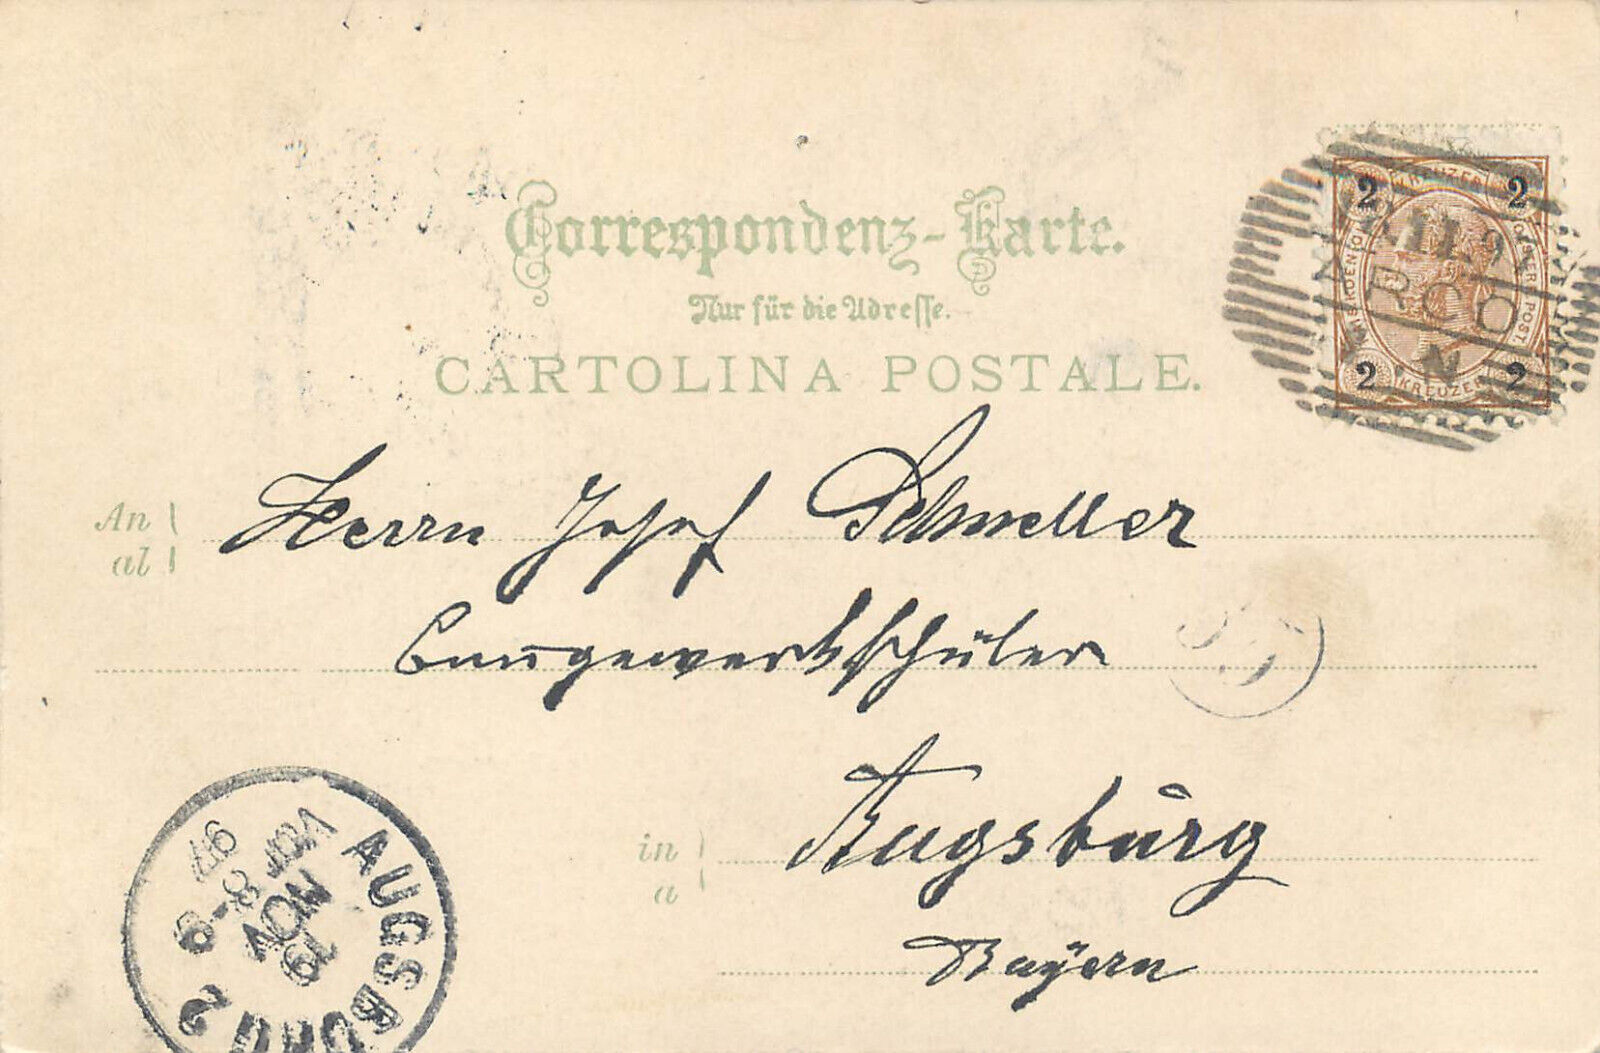 Correspondenz-Karte.
Nur für die Adresse.
CARTOLINA POSTALE.
2 KREUZER 2
2 KREUZER 2
RCO
An
al
Herrn Josef Schmeller
Baugewerkschüler
in
a
Augsburg
Bayern
AUGSBURG 2
19
NOV
Vor 8-9
97